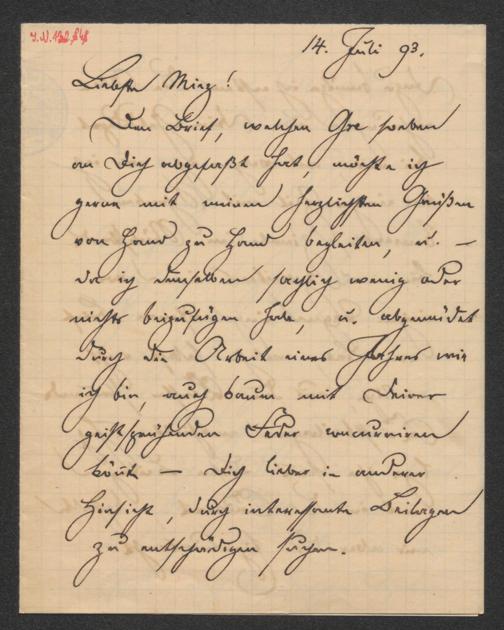 J.N. 192.848
14. Juli 93.
Liebste Mirz!
Den Brief, welchen Ihre soeben
an Dich abgefaßt hat, möchte ich
gerne mit meinen herzlichsten Grüßen
von Hand zu Hand begleiten, u. —
da ich demselben sachlich wenig oder
nichts beizufügen habe, u. abgemüdet
durch die Arbeit eines Jahres wie
ich bin, auch kaum mit Deiner
geistsprühenden Feder concurriren
könnte — Dich lieber in anderer
Hinsicht, durch interessante Beilagen
zu entschädigen suchen.